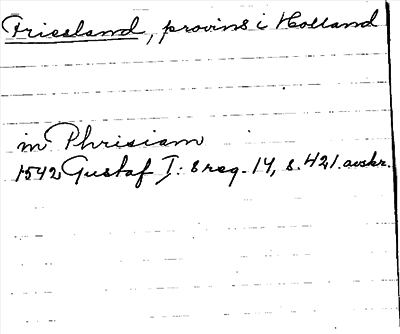 Friesland, provins i Holland
in Phrisiam
1542 Gustaf I: s reg. 14, s. 421. avskr.